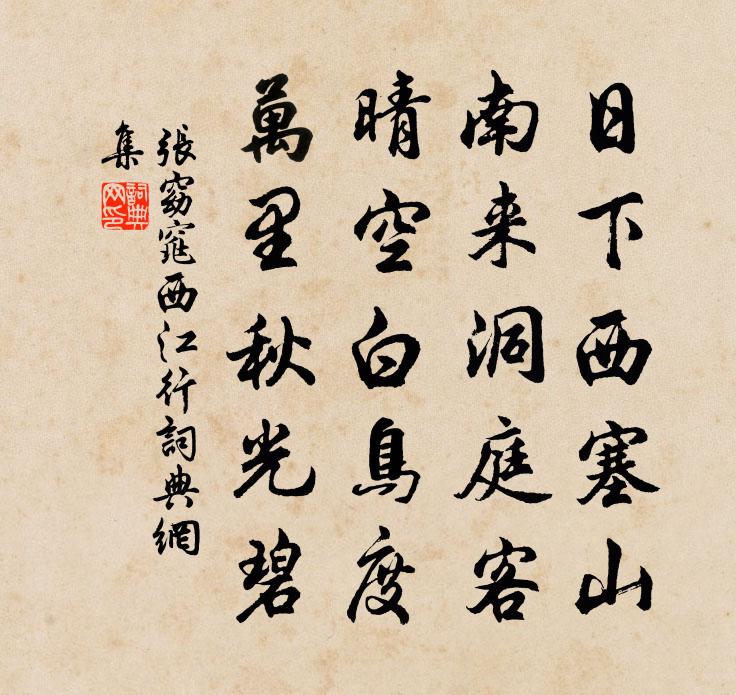 日下西塞山
南来洞庭客
晴空白鳥度
萬里秋光碧
張窈窕西江行詞典網
集
詞典
网印